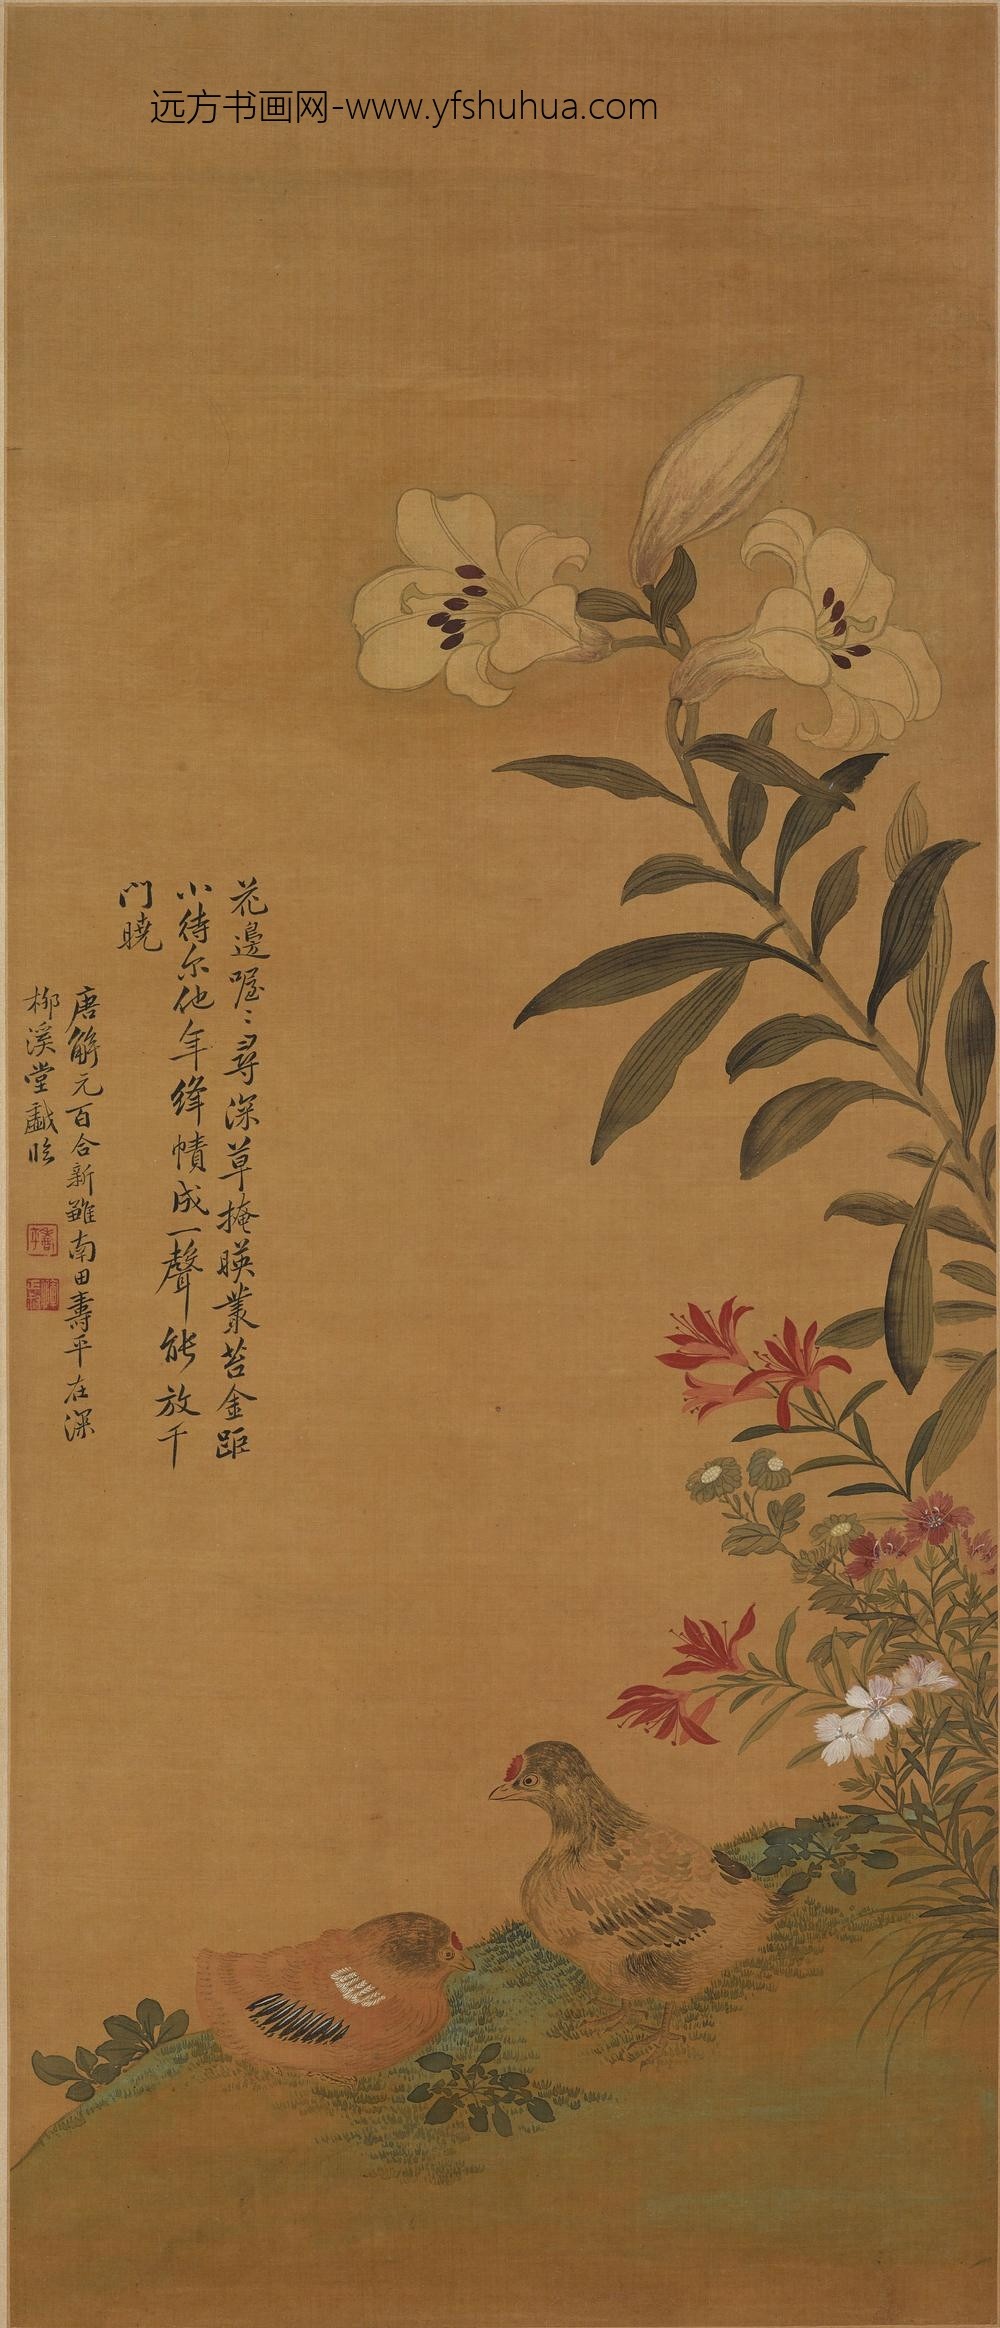 远方书画网-www.yfshuhua.com
花邊喔〻尋深草掩暎叢苔金距
小待尔他年絳幘成一聲能放千
門曉
唐解元百合新雛南田壽平在深
柳溪堂戲臨